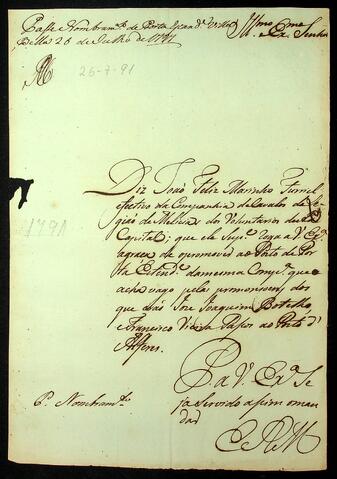 Passe Nombram.to de Porta Estand.e Villa
Bella 26 de Julho de 1791
Ill.mo e Ex.mo Senhor
26-7-91
1791
Diz João Feliz Marinho Furriel
efectivo da Companhia de Cavalos da Le
gião de Melicias dos Voluntarios desta
Capital; que elle Sup.e roga a V. Ex.a
a graca da o promover ao Posto de Por
ta Estend.e da mesma Comp.a que se
acha vago pelas promonsoens dos
que são Joze Joaquim Botelho
e Francisco Vieira Passos ao Posto d'
Alferes.
P. a V. Ex.a Se
ja servido asim o man
dar
E R M
P. Nombram.to